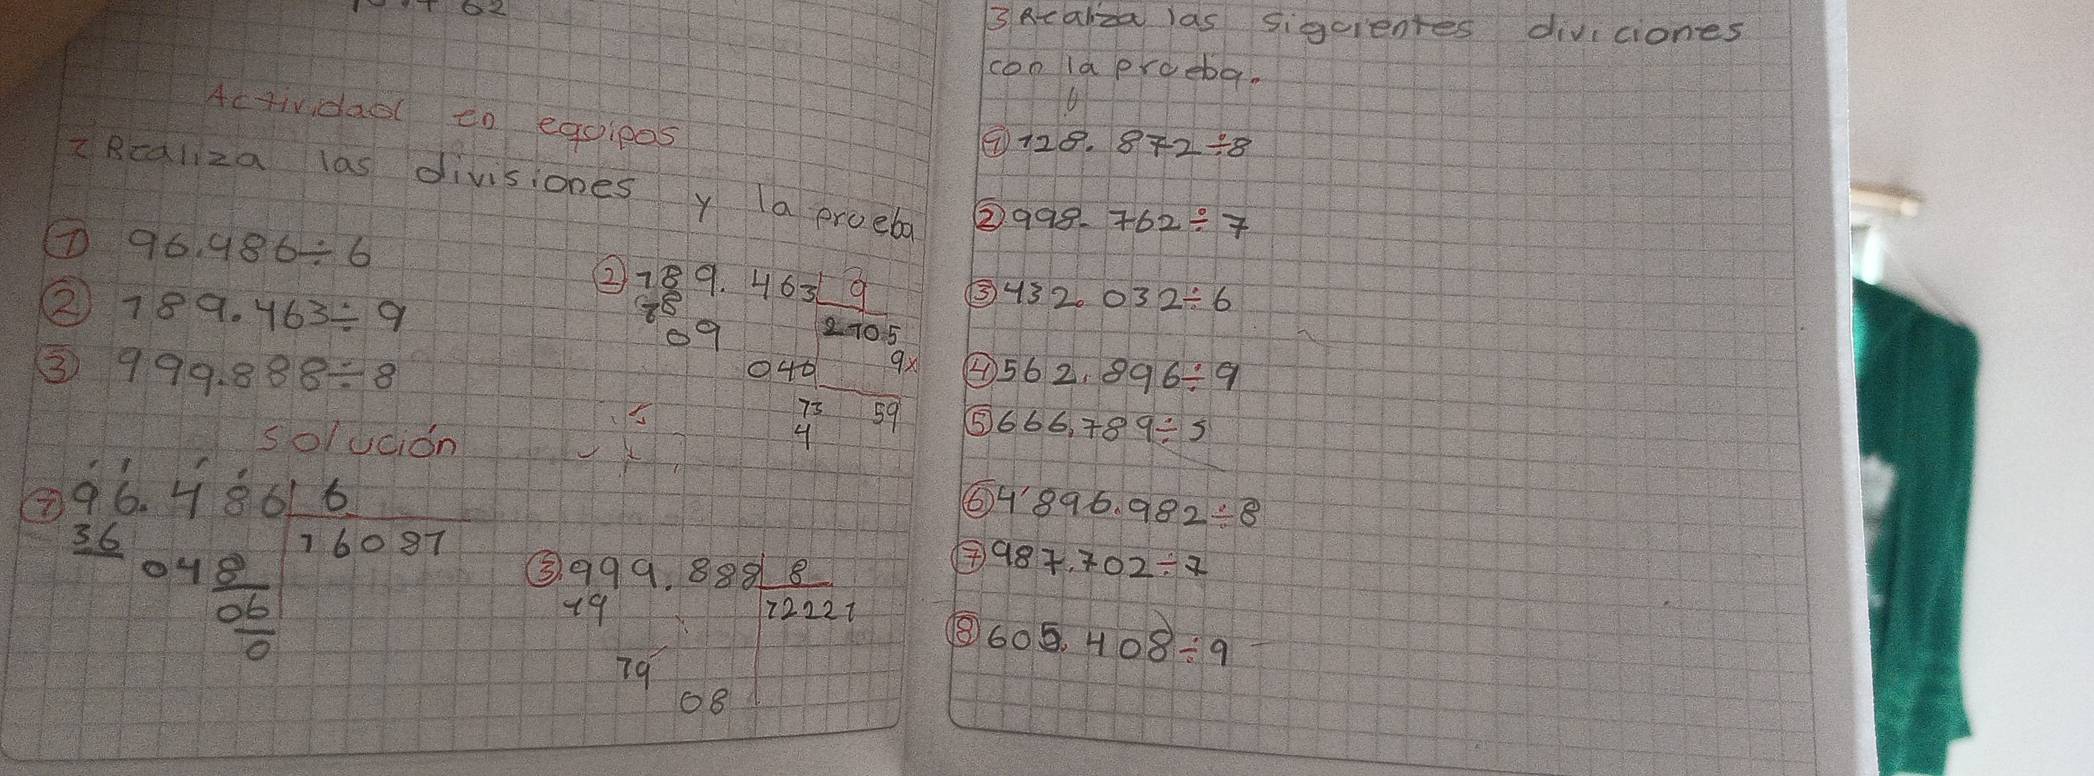 62
Actividad en equipos
2 Realiza las divisiones y la prueba
① 96.486÷6
② 189.463÷9
③ 999.888÷8
solución
① 96.486 6
36 16081
048
06
0
② 189.463 9
18 2105
09 9x
040
13 59
4
③ 999.888 8
19 12221
19
08
3 Realiza las siguientes diviciones
con la prueba.
① 128.872÷8
② 998.762÷7
③ 432.032÷6
④ 562.896÷9
⑤ 666.789÷5
⑥ 4'896.982÷8
⑦ 987.702÷7
⑧ 605.408÷9